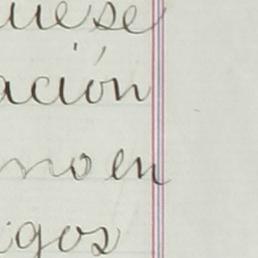 uese
ación
mo en
igos